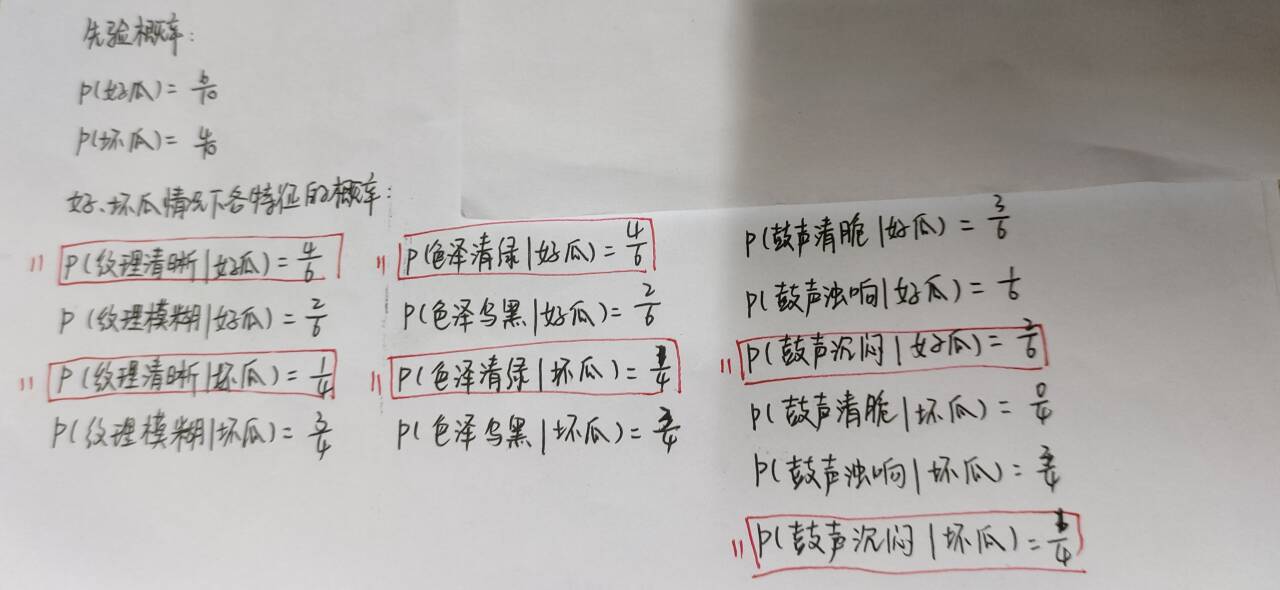 先验概率:
P(好瓜)= 6/10
P(坏瓜)= 4/10
好、坏瓜情况下各特征的概率:
P(纹理清晰|好瓜)= 4/6
P(纹理模糊|好瓜)= 2/6
P(纹理清晰|坏瓜)= 1/4
P(纹理模糊|坏瓜)= 3/4
P(色泽清绿|好瓜)= 4/6
P(色泽乌黑|好瓜)= 2/6
P(色泽清绿|坏瓜)= 1/4
P(色泽乌黑|坏瓜)= 3/4
P(鼓声清脆|好瓜)= 3/6
P(鼓声浊响|好瓜)= 1/6
P(鼓声沉闷|好瓜)= 2/6
P(鼓声清脆|坏瓜)= 0/4
P(鼓声浊响|坏瓜)= 3/4
P(鼓声沉闷|坏瓜)= 1/4